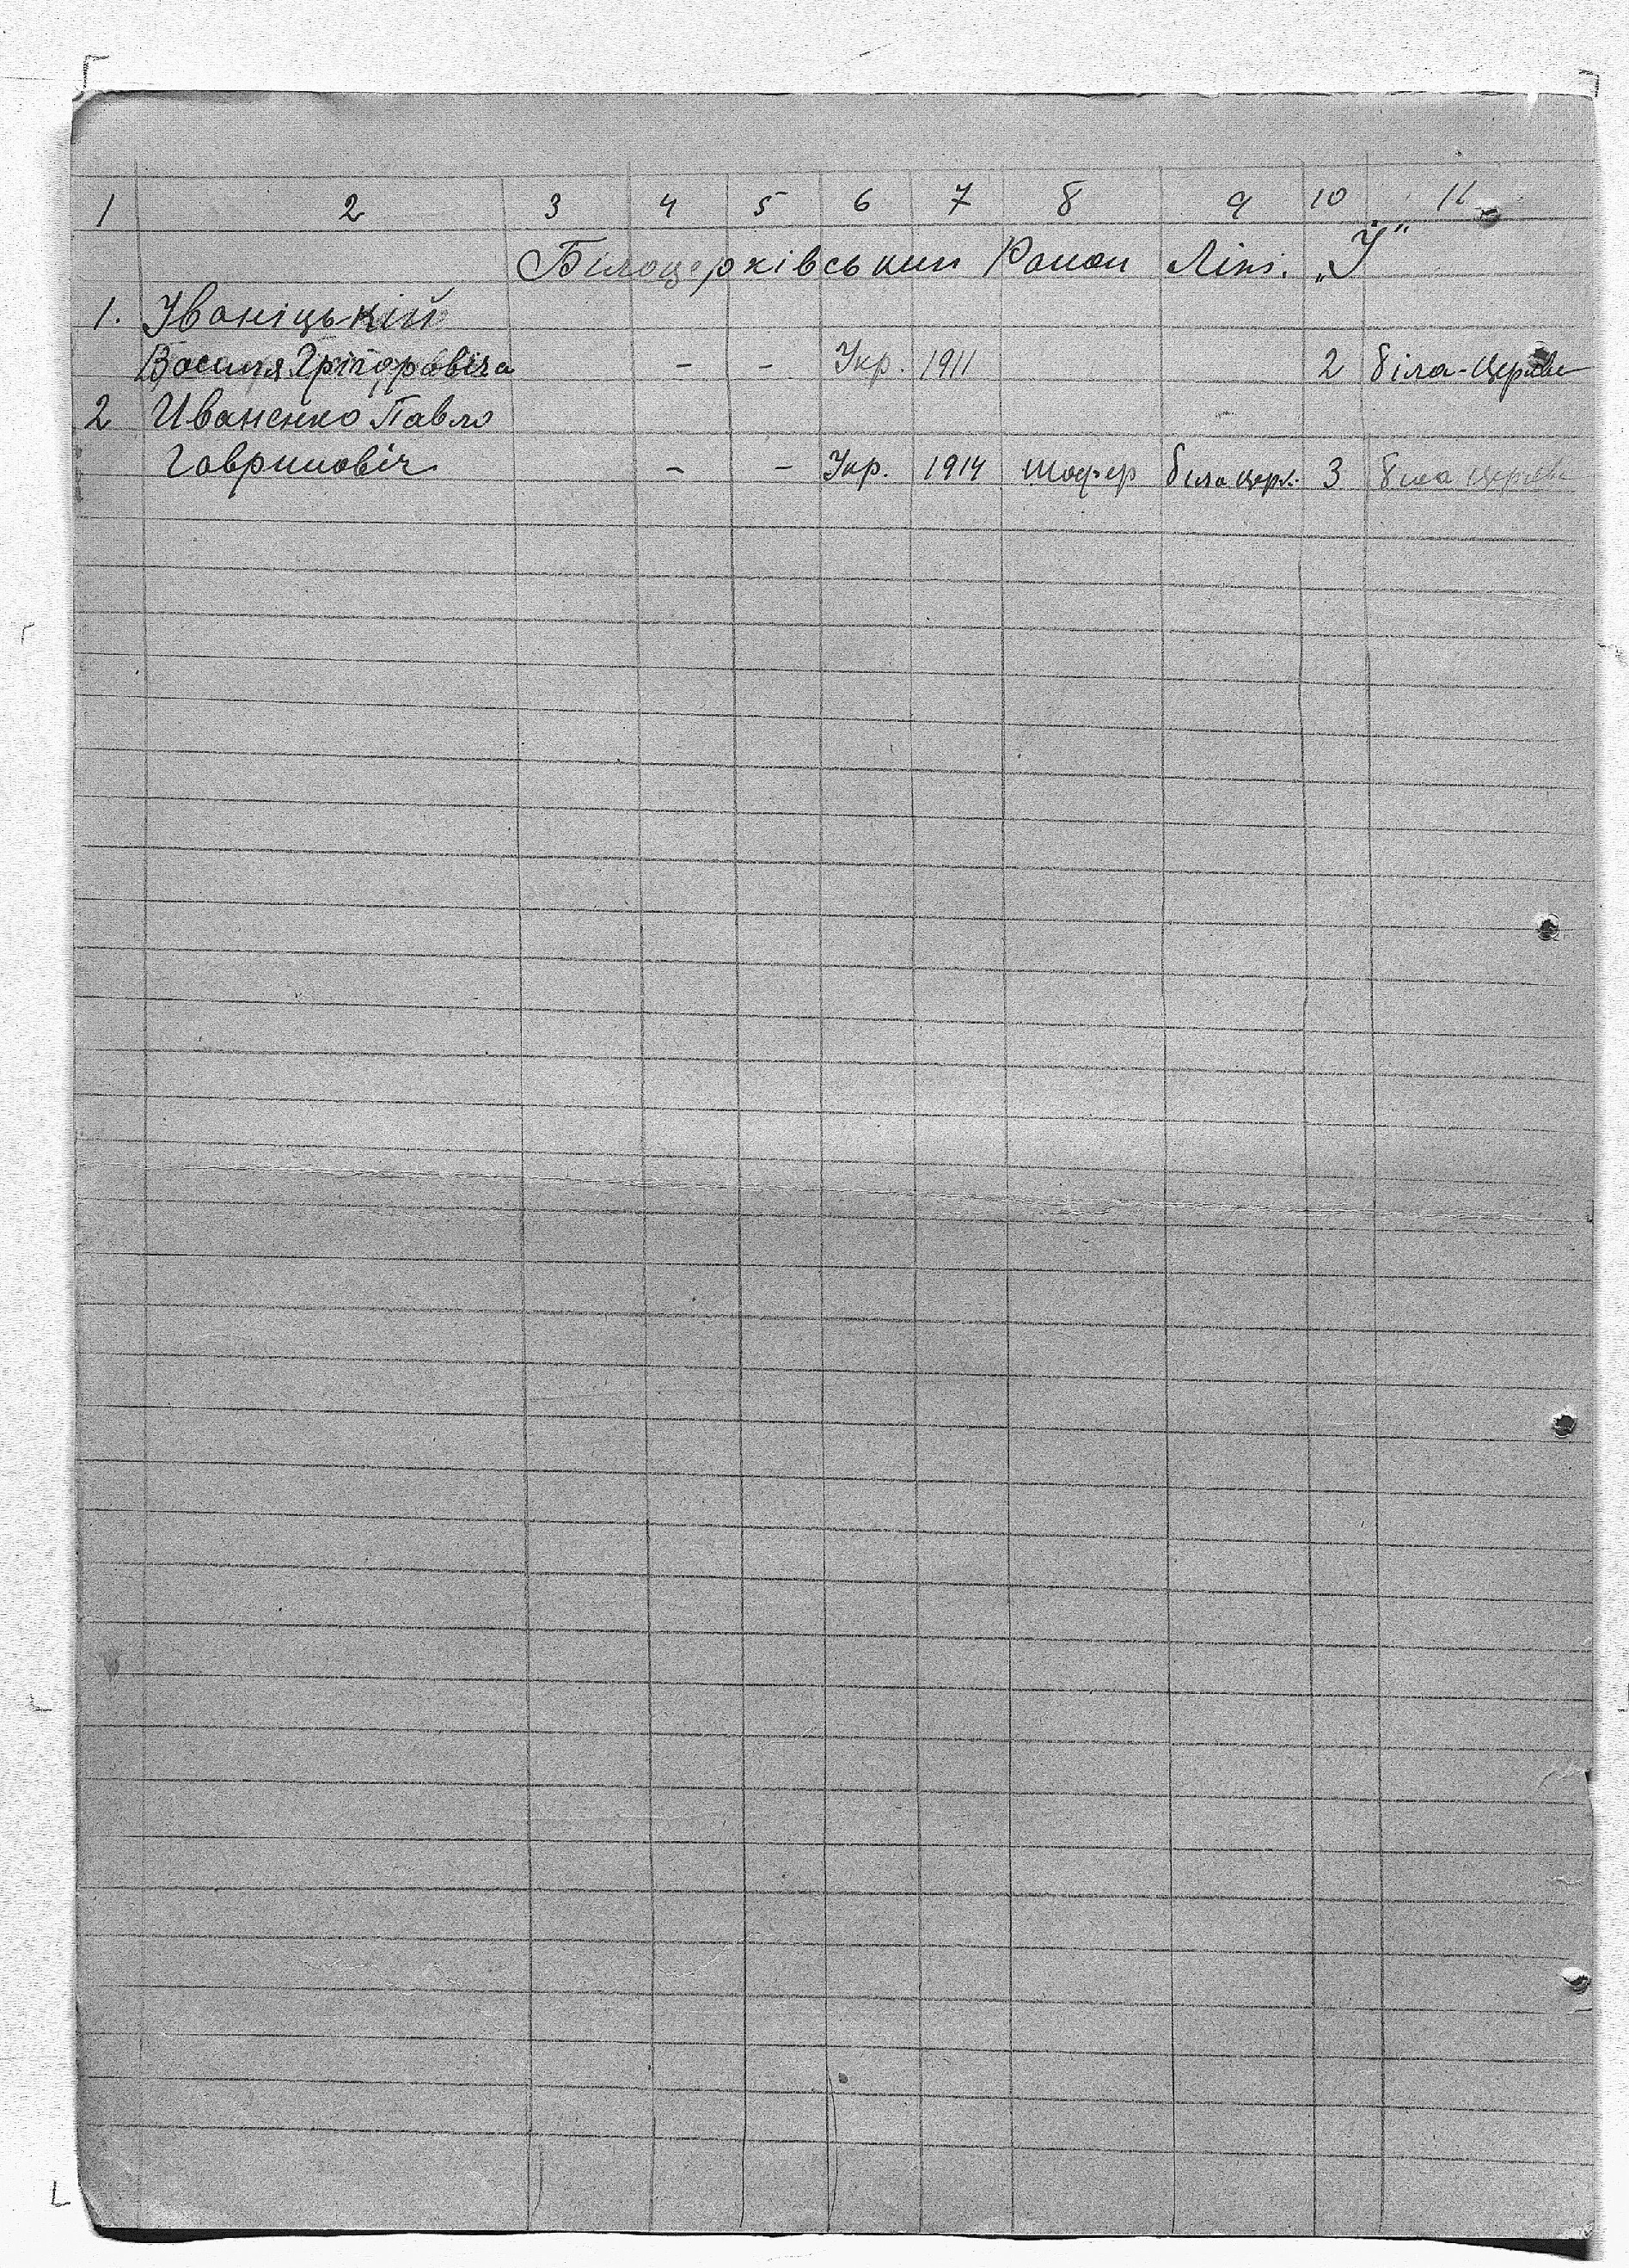 1 2 3 4 5 6 7 8 9 10 11
Білоцерківський Район Літ. „І"
1. Іваніцькій
Василя Грігоровіча - - Укр. 1911 2 біла-Церква
2 Иваненко Павло
Гаврилович - - Укр. 1914 шофер біла церк. 3 біла церква